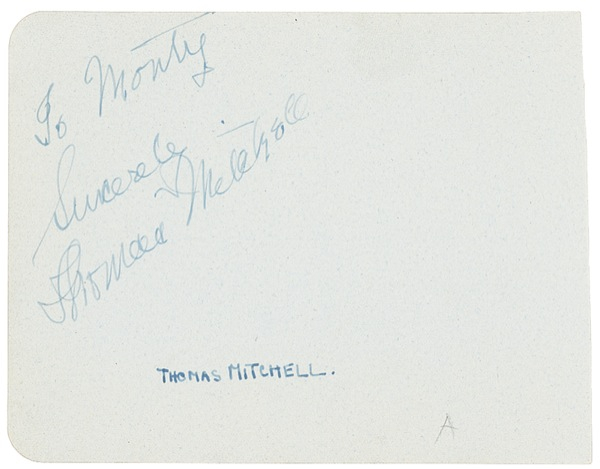 To Monty
Sincerely
Thomas Mitchell
THOMAS MITCHELL.
A